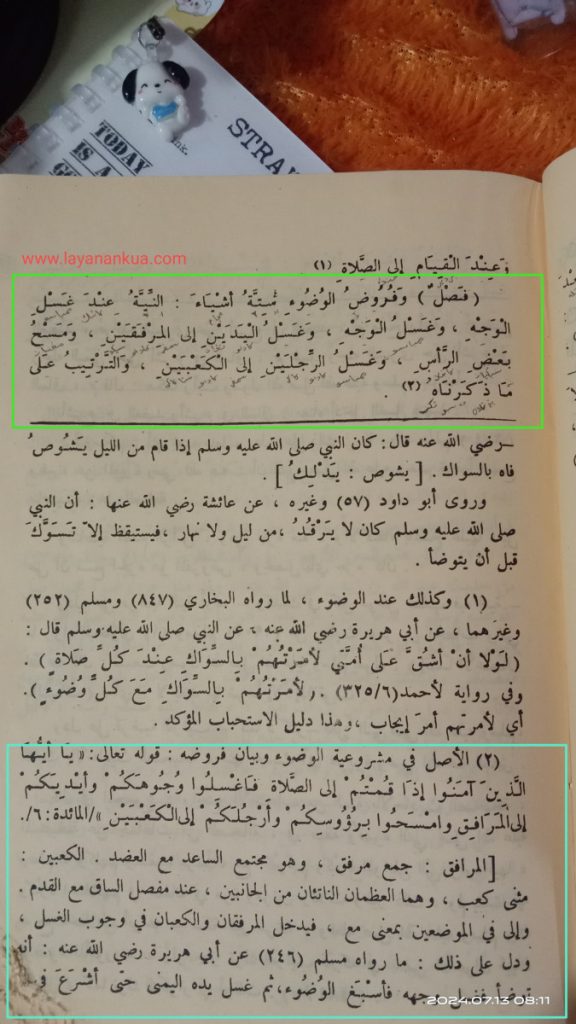 TODAY
IS A
STRA
www.layanankua.com
وَعِنْدَ الْقِيَامِ إلى الصَّلاة (١)
( فَصْلٌ ) وَفُرُوضُ الْوُضُوءِ سِتَّةُ أَشْيَاءَ : النِّيَّةُ عِنْدَ غَسْلِ
الْوَجْهِ ، وَغَسْلُ الْوَجْهِ ، وَغَسْلُ الْيَدَيْنِ إلى المِرْفَقَيْنِ ، وَمَسْحُ
بَعْضِ الرَّأْسِ ، وَغَسْلُ الرِّجْلَيْنِ إلى الْكَعْبَيْنِ ، وَالتَّرْتِيبُ عَلى
مَا ذَكَرْنَاهُ (٢) .
ـ رضي الله عنه قال : كان النبي صلى الله عليه وسلم إذا قام من الليل يَشُوصُ
فاه بالسواك . [ يشوص : يَدْلِكُ ] .
وروى أبو داود (٥٧) وغيره ، عن عائشة رضي الله عنها : أن النبي
صلى الله عليه وسلم كان لا يَرْقُدُ ،من ليل ولا نهار ،فيستيقظ إلاّ تَسَوَّكَ
قبل أن يتوضأ .
(١) وكذلك عند الوضوء ، لما رواه البخاري (٨٤٧) ومسلم (٢٥٢)
وغيرهما ، عن أبي هريرة رضي الله عنه ، عن النبي صلى الله عليه وسلم قال :
( لَوْلا أنْ أشُقَّ عَلَى أُمَّتي لأمَرْتُهُمْ بِالسِّوَاكِ عِنْدَ كُلِّ صَلاةٍ ) .
وفي رواية لأحمد (٣٢٥/٦) : ( لأمَرْتُهُمْ بِالسِّوَاكِ مَعَ كُلِّ وُضُوءٍ ) .
أي لأمرتهم أمرَ إيجاب ،وهذا دليل الاستحباب المؤكد .
(٢) الأصل في مشروعية الوضوء وبيان فروضه : قوله تعالى : « يَا أيُّهَا
الَّذِينَ آمَنُوا إذَا قُمْتُمْ إلى الصَّلاة فَاغْسِلُوا وُجُوهَكُمْ وأيْدِيَكُمْ
إلى المَرَافِقِ وامْسَحُوا بِرُؤُوسِكُمْ وأرْجُلَكُمْ إلى الْكَعْبَيْنِ »/المائدة : ٦/.
[المرافق : جمع مرفق ، وهو مجتمع الساعد مع العضد . الكعبين :
مثنى كعب ، وهما العظمان الناتئان من الجانبين ، عند مفصل الساق مع القدم .
وإلى في الموضعين بمعنى مع ، فيدخل المرفقان والكعبان في وجوب الغسل ،
ودل على ذلك : ما رواه مسلم (٢٤٦) عن أبي هريرة رضي الله عنه : أنه
توضأ فغسل وجهه فأسْبَغَ الوُضُوءَ،ثم غسل يده اليمنى حتى أشْرَعَ في
2024.07.13 08:11